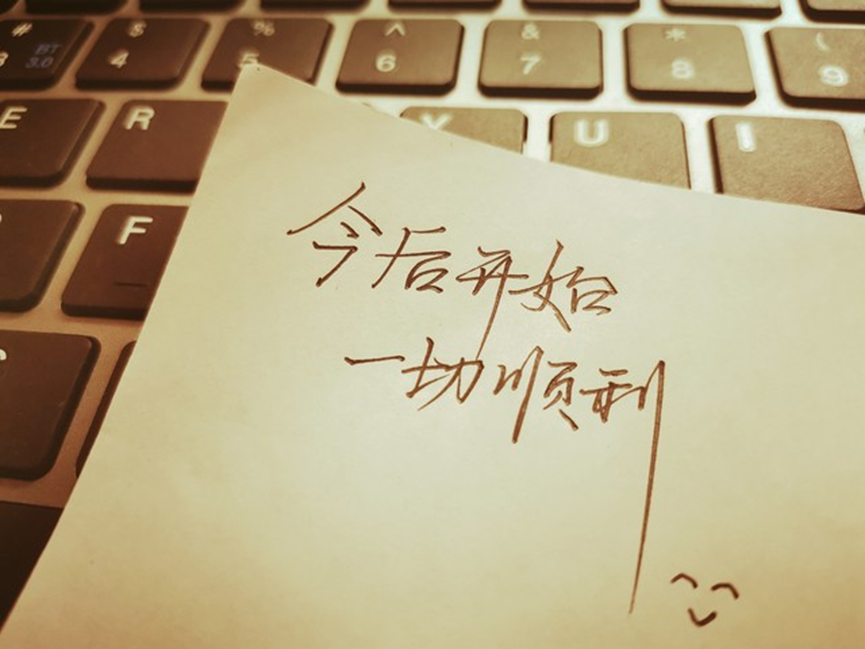 # $ % ^ & * (
3 BT 3.0 4 5 6 7 8 9
E R Y U I
F
今后开始
一切顺利